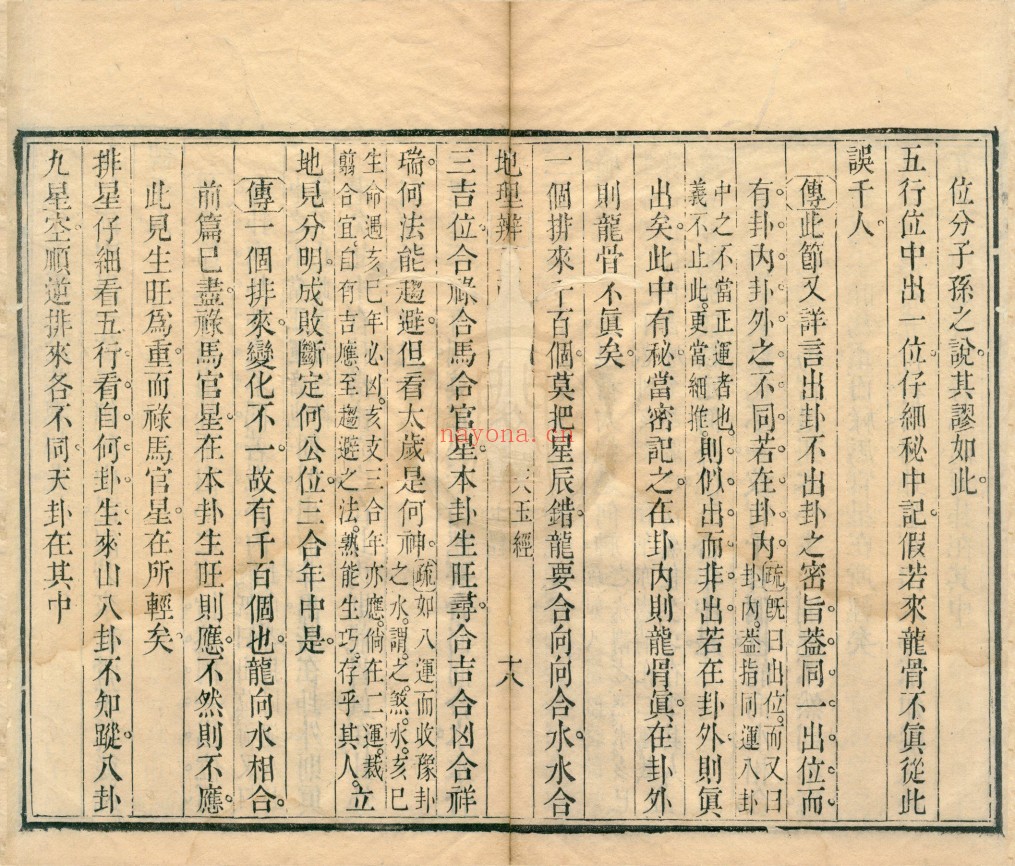 位分子孫之說其謬如此
五行位中出一位仔細秘中記假若來龍骨不眞從此
誤千人
傳此節又詳言出卦不出卦之密旨葢同一出位而
有卦內卦外之不同若在卦內疏旣曰出位而又曰卦內葢指同運八卦
中之不當正運者也義不止此更當細推則似出而非出若在卦外則眞
出矣此中有秘當密記之在卦內則龍骨眞在卦外
則龍骨不眞矣
一個排來千百個莫把星辰錯龍要合向向合水水合
地理辨 天玉經 十八
三吉位合祿合馬合官星本卦生旺尋合吉合凶合祥
瑞何法能趨避但看太歲是何神疏如八運而收豫卦之水謂之煞水亥巳
生命遇亥巳年必凶亥支三合年亦應倘在二運裁翦合宜自有吉應至趨避之法熟能生巧存乎其人立
地見分明成敗斷定何公位三合年中是
傳一個排來變化不一故有千百個也龍向水相合
前篇已盡祿馬官星在本卦生旺則應不然則不應
此見生旺爲重而祿馬官星在所輕矣
排星仔細看五行看自何卦生來山八卦不知蹤八卦
九星空順逆排來各不同天卦在其中
nayona.cn